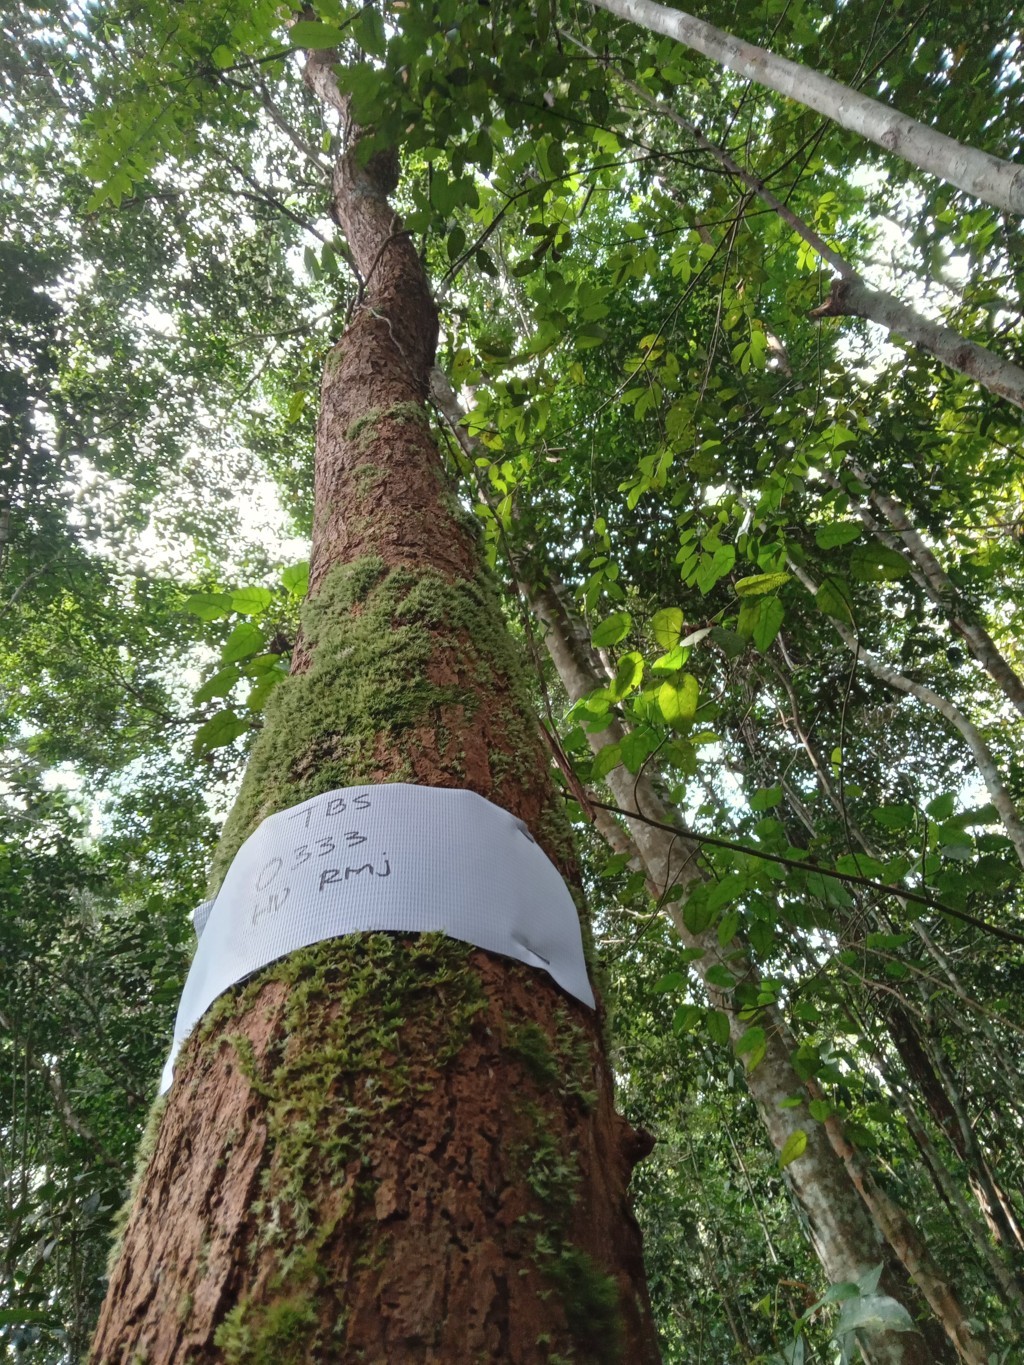 TBS
0333
HV RMJ